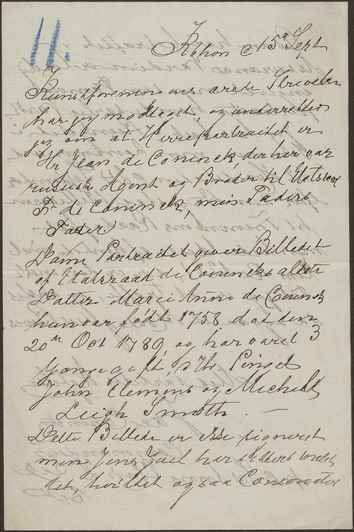 11.
Kbhvn d 15 Sept
Kunstforeningens ærede Skrivelse
har jeg modtaget, og underretter
jeg om at Herreportraitet er
Hr Jean de Coninck der her var
russisk Agent og Broder til Etatsraad
Fr de Coninck, min Faders
Fader
Dame Portraitet giver Billedet
af Etatsraad de Conincks ældste
Datter Marie Anne de Coninck
hun var født 1758 død den
20de Oct 1789 og har været 3
Gange gift, Pingel
John Clemens og Michell
Leigh Smith. —
Dette Billede er ikke signeret
men Jens Juel har
det, hvilket ogsaa Conservator